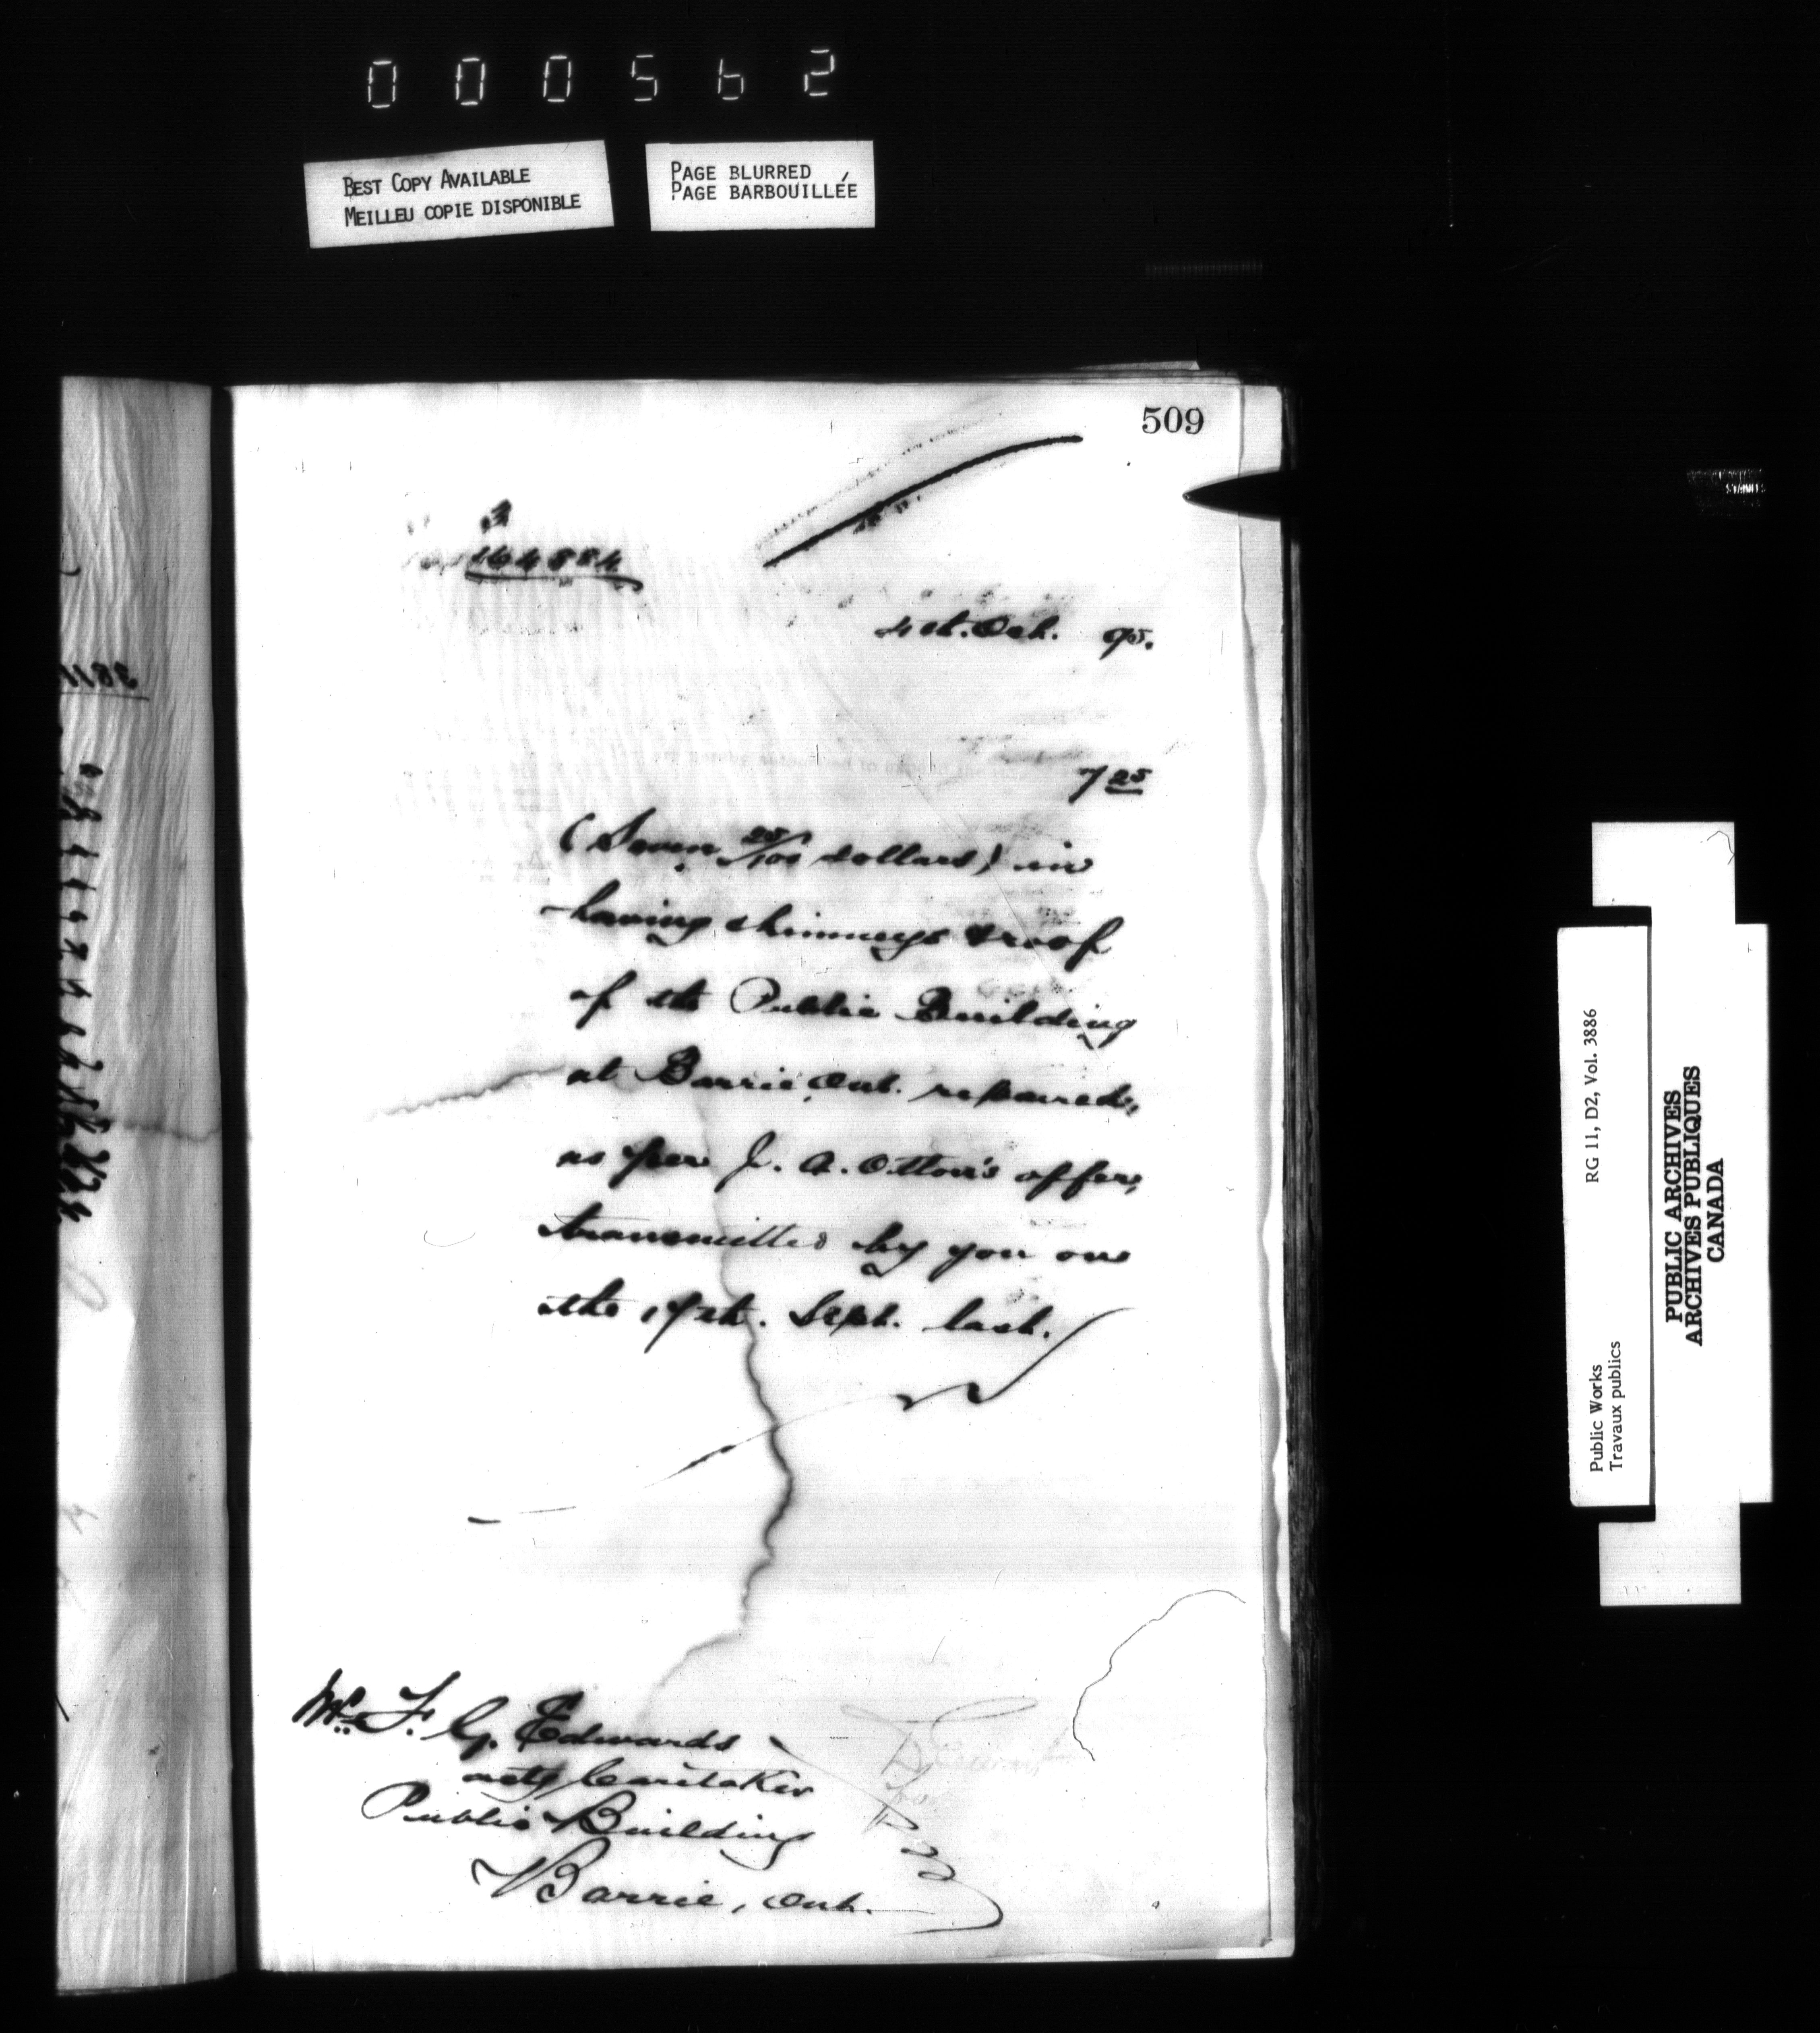 000562
BEST COPY AVAILABLE
MEILLEU COPIE DISPONIBLE
PAGE BLURRED
PAGE BARBOUILLÉE
509
3
164884
4th. Oct. 95.
7 25
(Seven 25/100 dollars) in
having chimneys & roof
of the Public Building
at Barrie, Ont. repaired,
as per J. A. Otton's offer,
transmitted by you on
the 17th. Sept. last.
Mr. F. G. Edwards
actg Caretaker
Public Building
Barrie, Ont.
Public Works
Travaux publics
RG 11, D2, Vol. 3886
PUBLIC ARCHIVES
ARCHIVES PUBLIQUES
CANADA